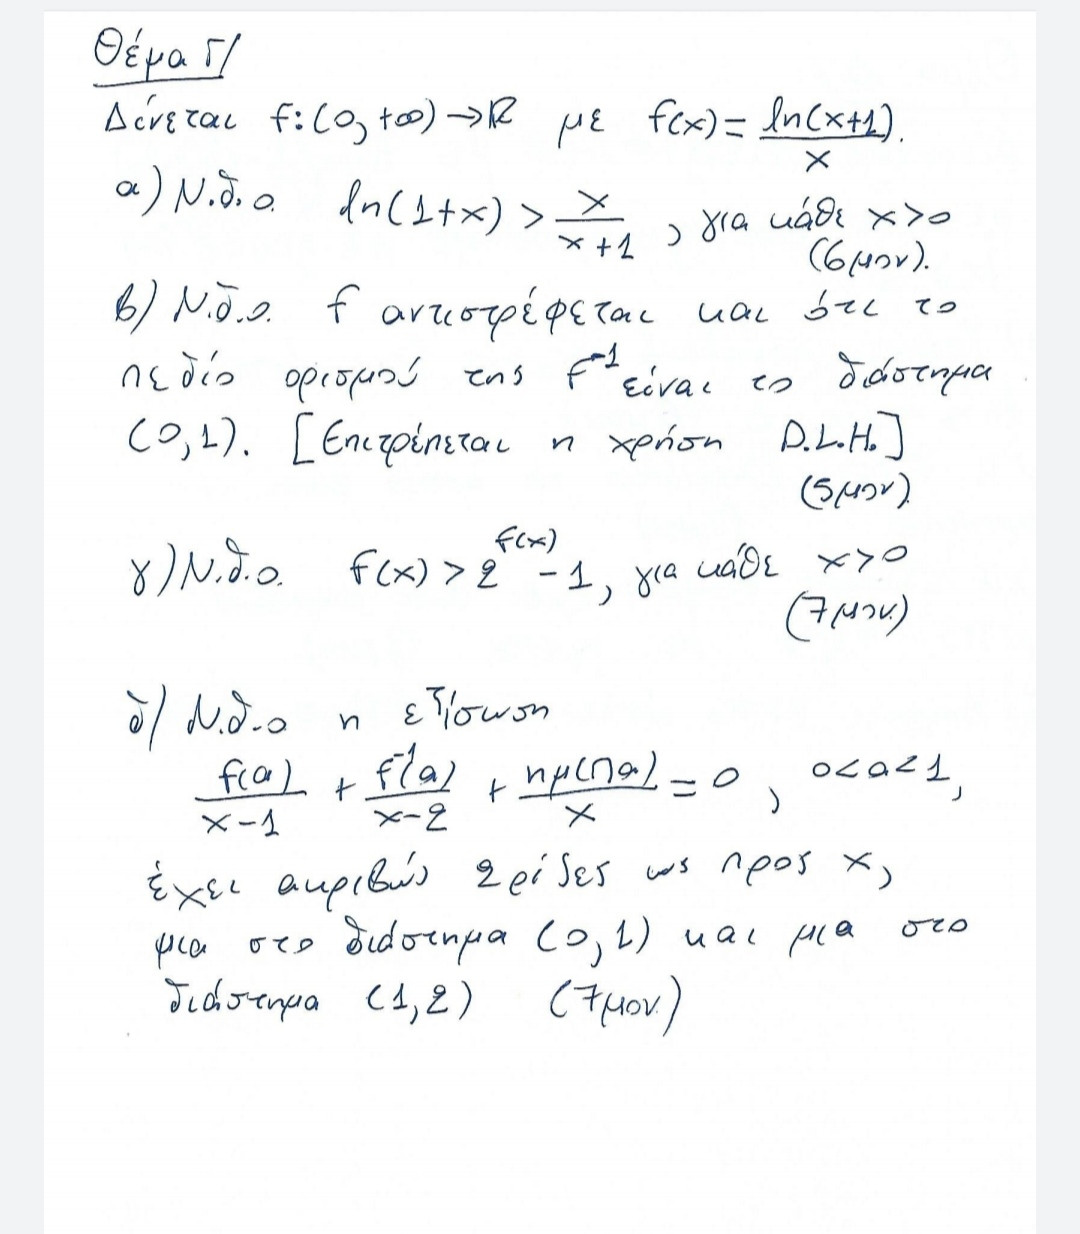 Θέμα Γ/
Δίνεται f:(0,+∞)→ℝ με f(x)= ln(x+1)/x.
α) Ν.δ.ο. ln(1+x) > x/(x+1), για κάθε x>0
(6μον).
β) Ν.δ.ο. f αντιστρέφεται και ότι το
πεδίο ορισμού της f⁻¹ είναι το διάστημα
(0,1). [Επιτρέπεται η χρήση D.L.H.]
(5μον)
γ) Ν.δ.ο. f(x) > 2^f(x) - 1, για κάθε x>0
(7μον.)
δ/ Ν.δ.ο η εξίσωση
f(α)/(x-1) + f⁻¹(α)/(x-2) + ημ(πα)/x = 0, 0<α<1,
έχει ακριβώς 2 ρίζες ως προς x,
μια στο διάστημα (0,1) και μια στο
διάστημα (1,2) (7μον.)